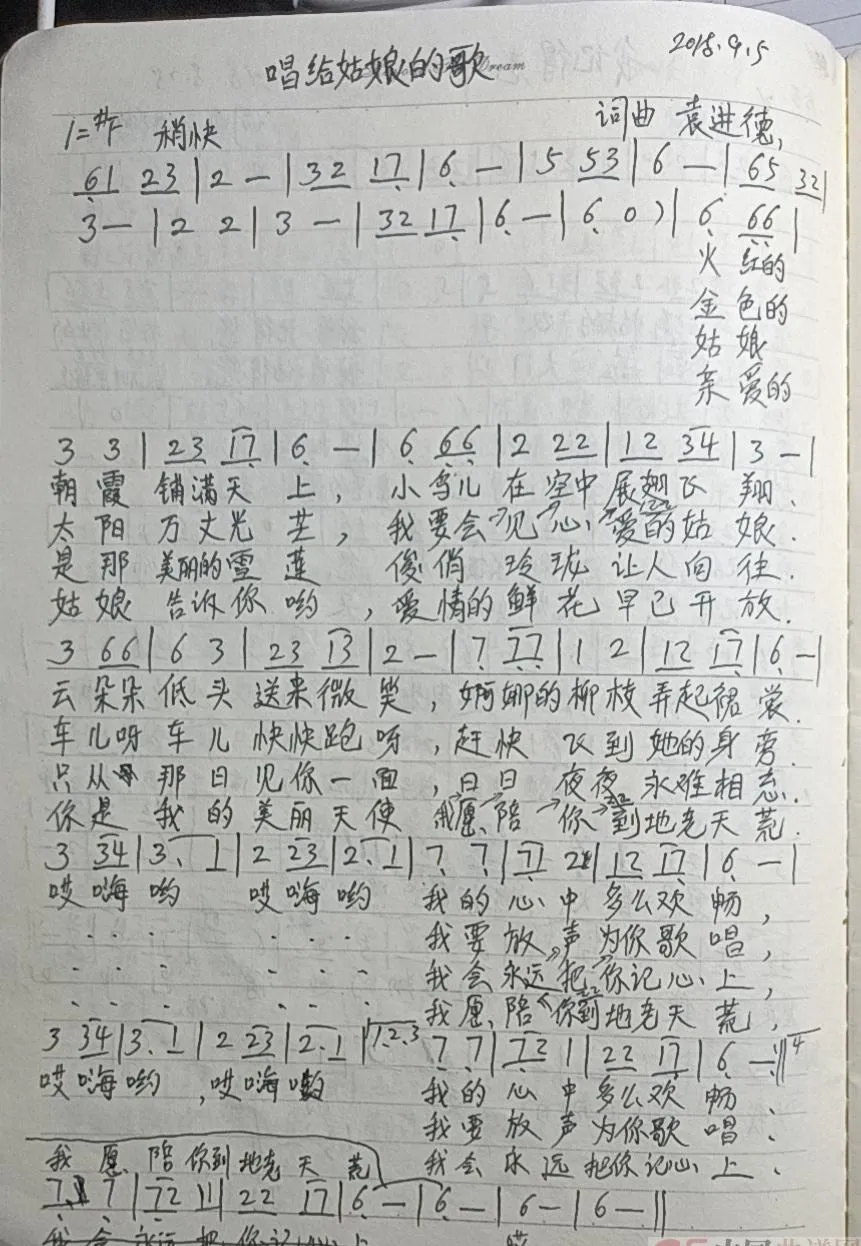 2018.9.5
唱给姑娘的歌 Dream
1=#F 稍快 词曲 袁进德,
61 23 | 2 — | 32 17 | 6 — | 5 53 | 6 — | 65 32 |
3 — | 2 2 | 3 — | 32 17 | 6 — | 6 0 ) | 6 66 |
火 红的
金 色的
姑 娘
亲 爱的
3 3 | 23 17 | 6 — | 6 66 | 2 22 | 12 34 | 3 — |
朝霞 铺满天 上, 小鸟儿 在空中展翅飞 翔.
太阳 万丈光 芒, 我要会见心爱的姑 娘.
是那 美丽的雪 莲 俊俏 玲珑 让人向 往.
姑娘 告诉你 哟, 爱情的鲜花早已开 放.
3 66 | 6 3 | 23 13 | 2 — | 7 77 | 1 2 | 12 17 | 6 — |
云朵朵低头 送来微笑, 婀娜的柳枝弄起裙裳.
车儿呀车儿 快快跑呀, 赶快 飞到她的身旁.
只从 那日见你一面, 日日 夜夜永难相忘.
你是 我的美丽天使 我愿陪 你到地老天荒.
3 34 | 3. 1 | 2 23 | 2. 1 | 7 7 | 71 2 | 12 17 | 6 — |
哎嗨哟 哎嗨哟 我的心中多么欢畅,
· · · · · · 我要放声为你歌唱,
· · · · · · 我会永远把你记心上,
· · · · · · 我愿陪你到地老天荒,
3 34 | 3. 1 | 2 23 | 2. 1 | 1.2.3 7 7 | 72 1 | 22 17 | 6 — :|| 4
哎嗨哟, 哎嗨 我的心中多么欢畅.
我要放声为你歌唱.
我愿陪你到地老天荒 我会永远把你记心上.
7 7 | 72 1 | 22 17 | 6 — | 6 — | 6 — | 6 — ||
我会永远把你记心上